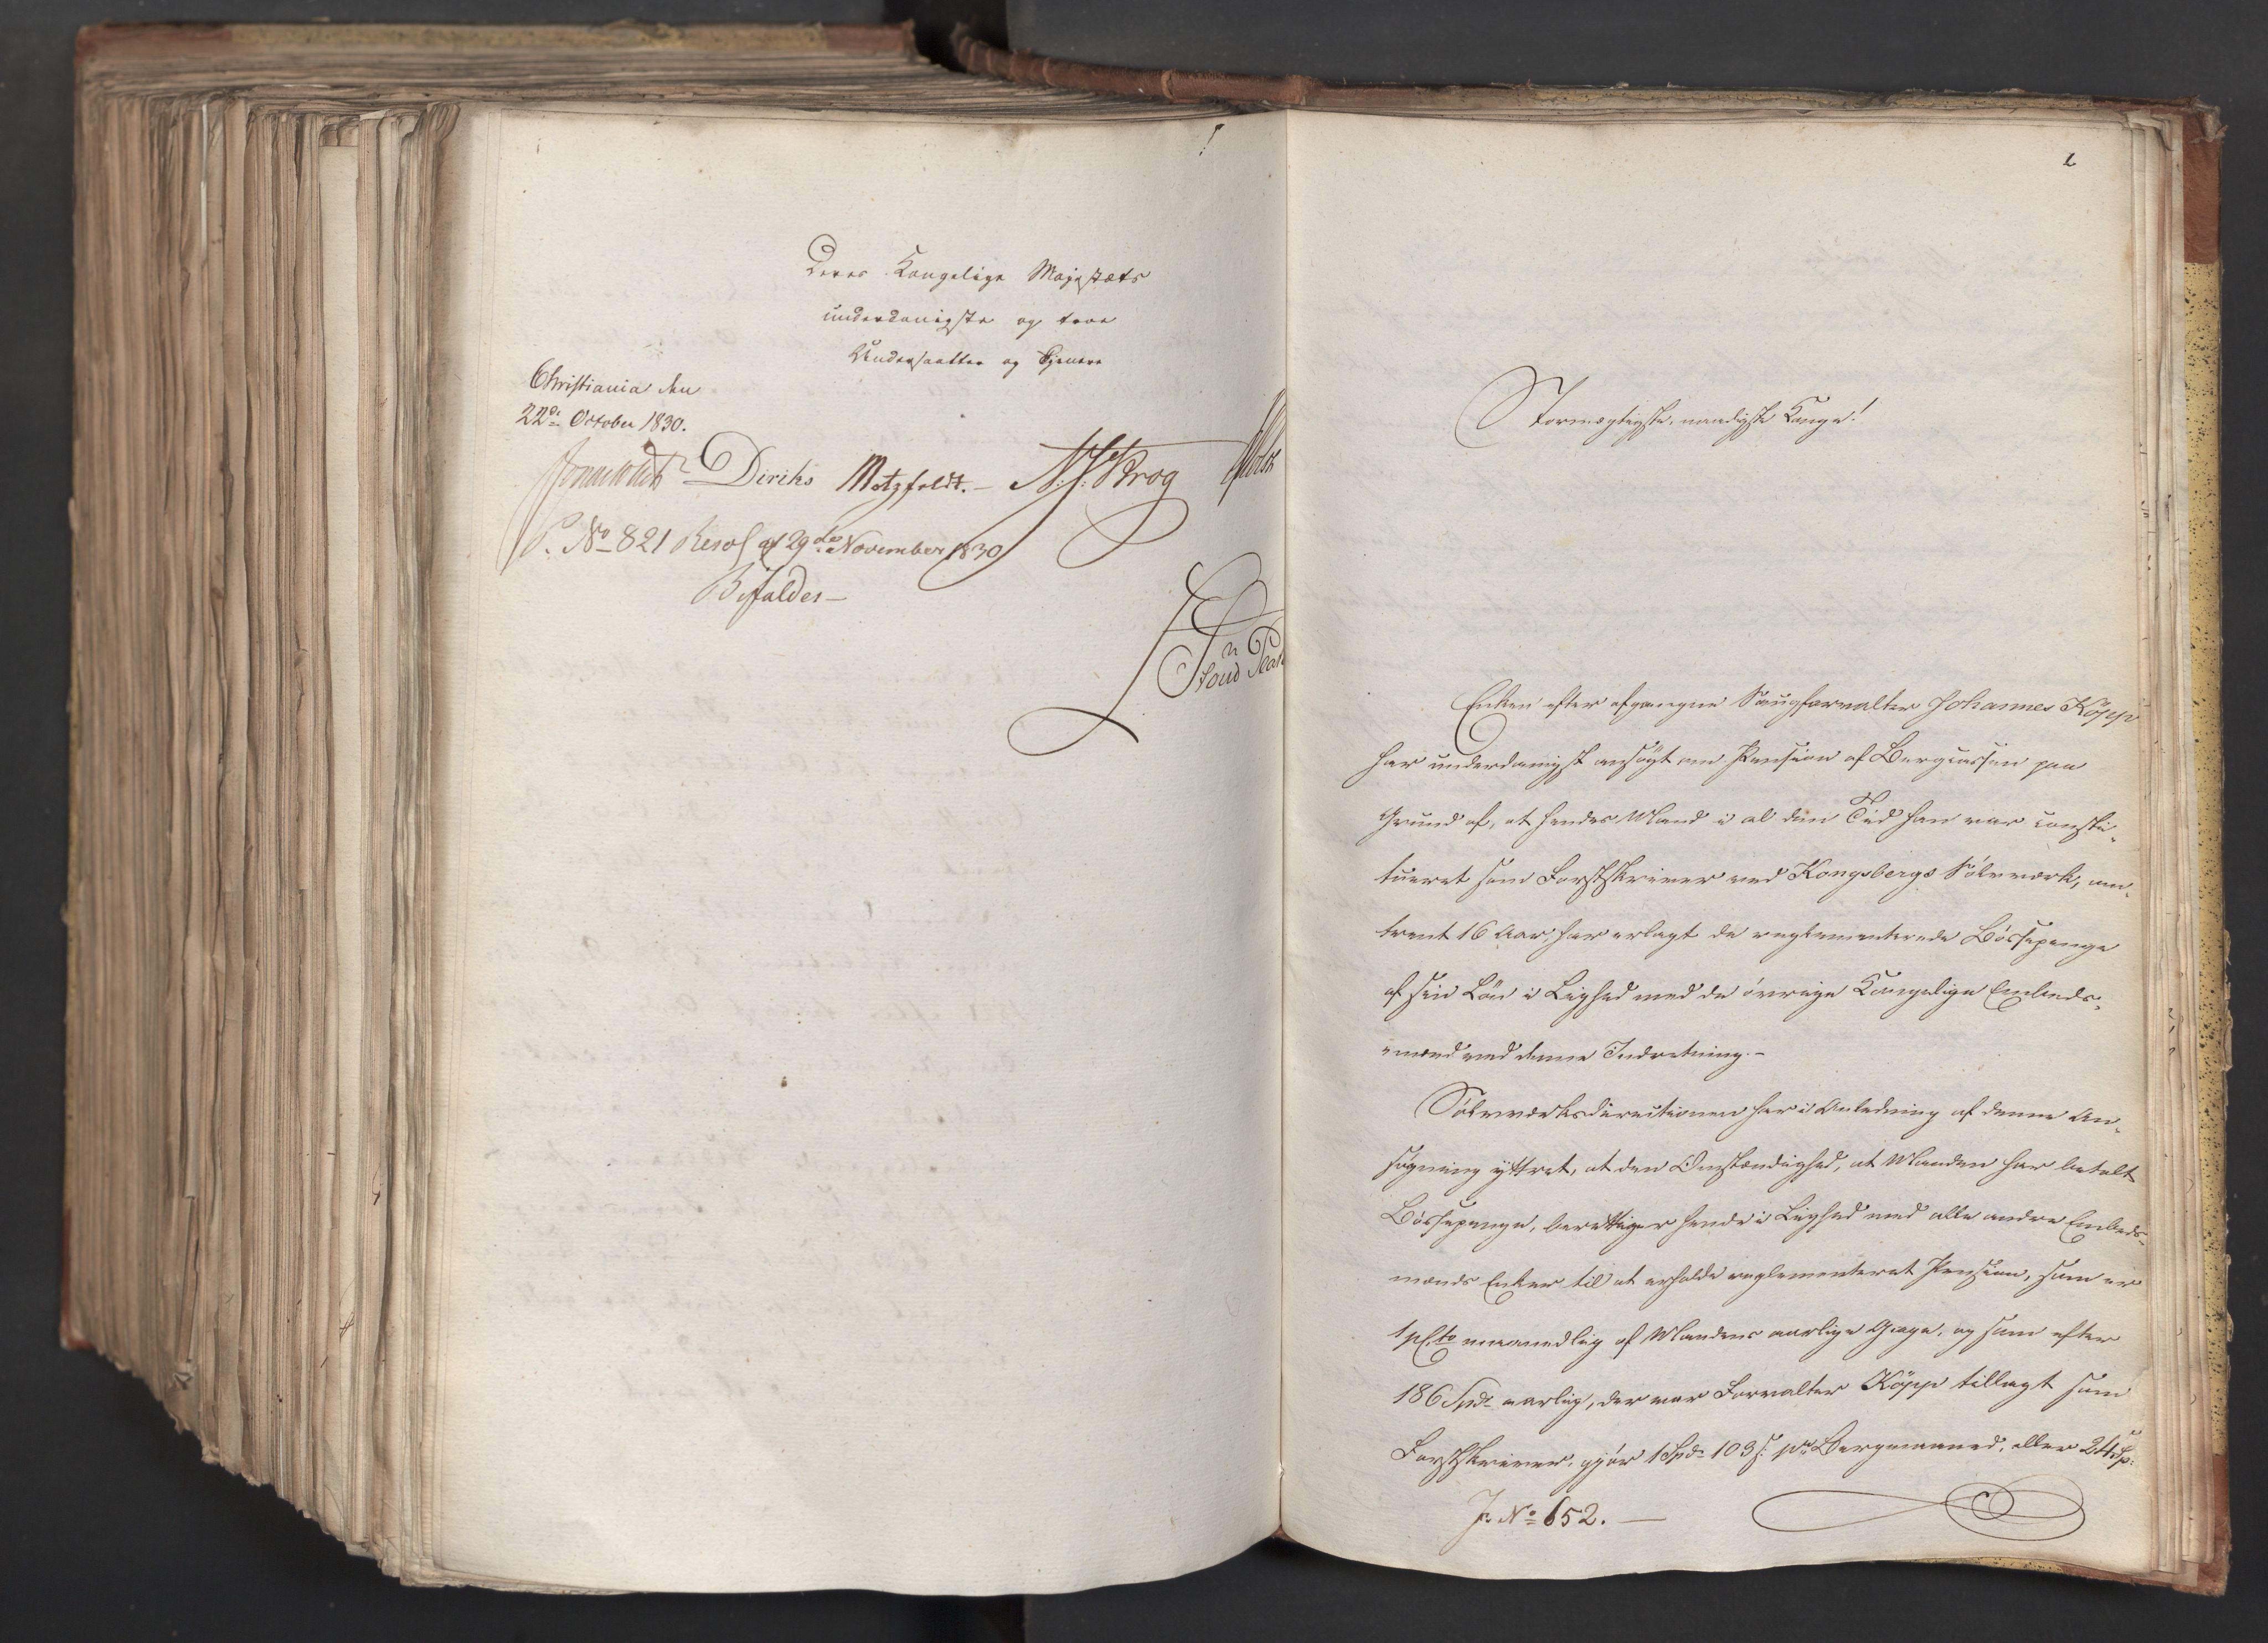 Deres Kongelige Majestæts
underdanigste og troe
Undersaatter og Tjenere
Christiania den
22de October 1830.
Diriks Motzfeldt. — N. J. Krog Holst
P. No 821 Resol af 29de November 1830
Bifaldes —
Stormægtigste, naadigste Konge!
Enken efter afgangne Saugforvalter Johannes Köpp
har underdanigst ansögt om Pension af Bergcassen paa
Grund af, at hendes Mand i al den Tid han var consti-
tueret som Forstskriver ved Kongsbergs Sölvværk, om-
trent 16 Aar, har erlagt de reglementerede Bössepenge
af sin Lön i Lighed med de övrige Kongelige Embeds-
mænd ved denne Indretning. —
Sölvværksdirectionen har i Anledning af denne An-
søgning yttret, at den Omstændighed, at Manden har betalt
Bössepenge, berettiger hende i Lighed med alle andre Embeds-
mænds Enker til at erholde reglementeret Pension, som er
1 pCto maanedlig af Mandens aarlige Gage, og som efter
186 Spd aarlig, der var Forvalter Köpp tillagt som
Forstskriver, gjör 1 Spd 103 s. pr Bergmaaned, eller 24 Sp:
J. No 652. —